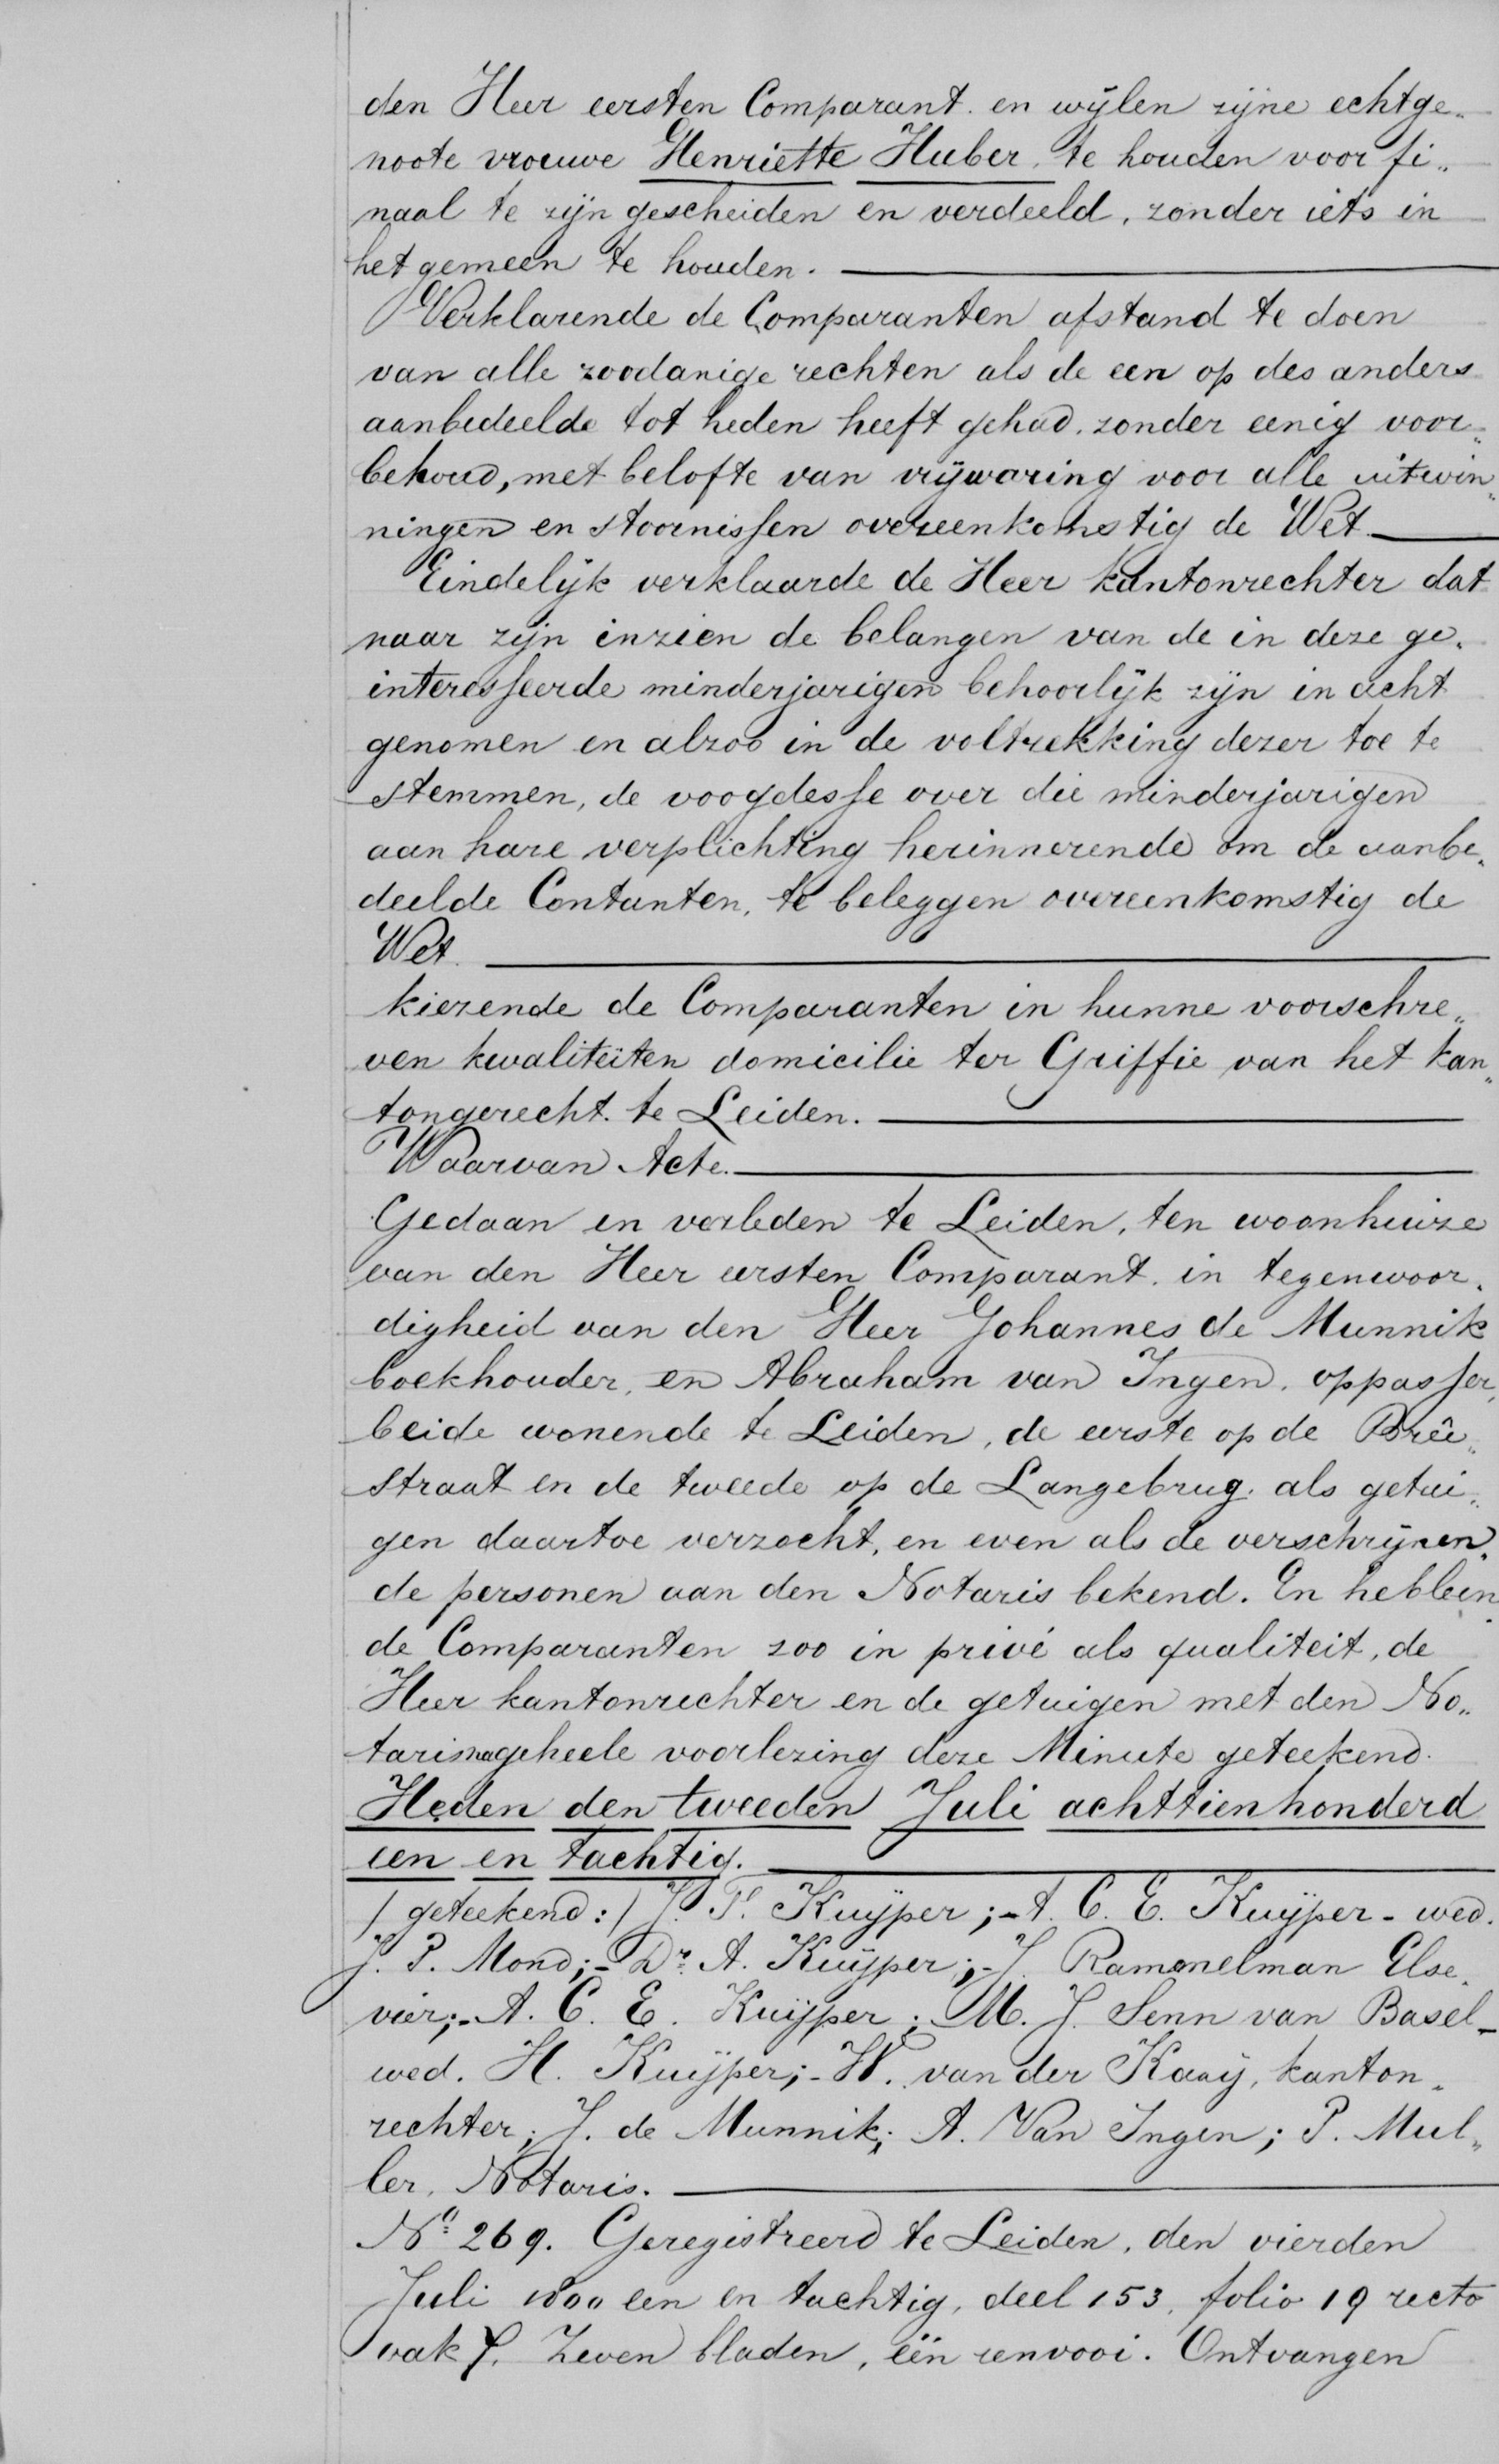 den Heer eersten Comparant en wijlen zijne echtge„
noote vrouwe Henriette Huber, te houden voor fi„
naal te zijn gescheiden en verdeeld, zonder iets in
het gemeen te houden.
Verklarende de Comparanten afstand te doen
van alle zoodanige rechten als de een op des anders
aanbedeelde tot heden heeft gehad, zonder eenig voor„
behoud, met belofte van vrijwaring voor alle uitwin„
ningen en stoornissen overeenkomstig de Wet.
Eindelijk verklaarde de Heer kantonrechter dat
naar zijn inzien de belangen van de in deze ge„
interesseerde minderjarigen behoorlijk zijn in acht
genomen en alzoo in de voltrekking dezer toe te
stemmen, de voogdesse over die minderjarigen
aan hare verplichting herinnerende om de aanbe„
deelde Contanten, te beleggen overeenkomstig de
Wet.
kiezende de Comparanten in hunne voorschre„
ven kwaliteiten domicilie ter Griffie van het kan„
tongerecht te Leiden.
Waarvan Acte.
Gedaan en verleden te Leiden, ten woonhuize
van den Heer eersten Comparant, in tegenwoor„
digheid van den Heer Johannes de Munnik
boekhouder, en Abraham van Ingen, oppasser,
beide wonende te Leiden, de eerste op de Breê„
straat en de tweede op de Langebrug, als getui„
gen daartoe verzocht, en even als de verschijnen„
de personen aan den Notaris bekend. En hebben
de Comparanten zoo in privé als qualiteit, de
Heer kantonrechter en de getuigen met den No„
taris na geheele voorlezing deze Minute geteekend.
Heden den tweeden Juli achttienhonderd
een en tachtig.
/ geteekend: / J. F. Kuijper; - A. C. E. Kuijper - wed.
J. P. Mond; - Dr. A. Kuijper; - J. Rammelman Else„
vier; - A. C. E. Kuijper; M. J. Senn van Basel -
wed. H. Kuijper; - W. van der Kaay, kanton„
rechter; J. de Munnik; A. Van Ingen; P. Mul„
ler, Notaris.
No. 269. Geregistreerd te Leiden, den vierden
Juli 1800 een en tachtig, deel 153, folio 19 recto
vak Zeven bladen, één renvooi. Ontvangen